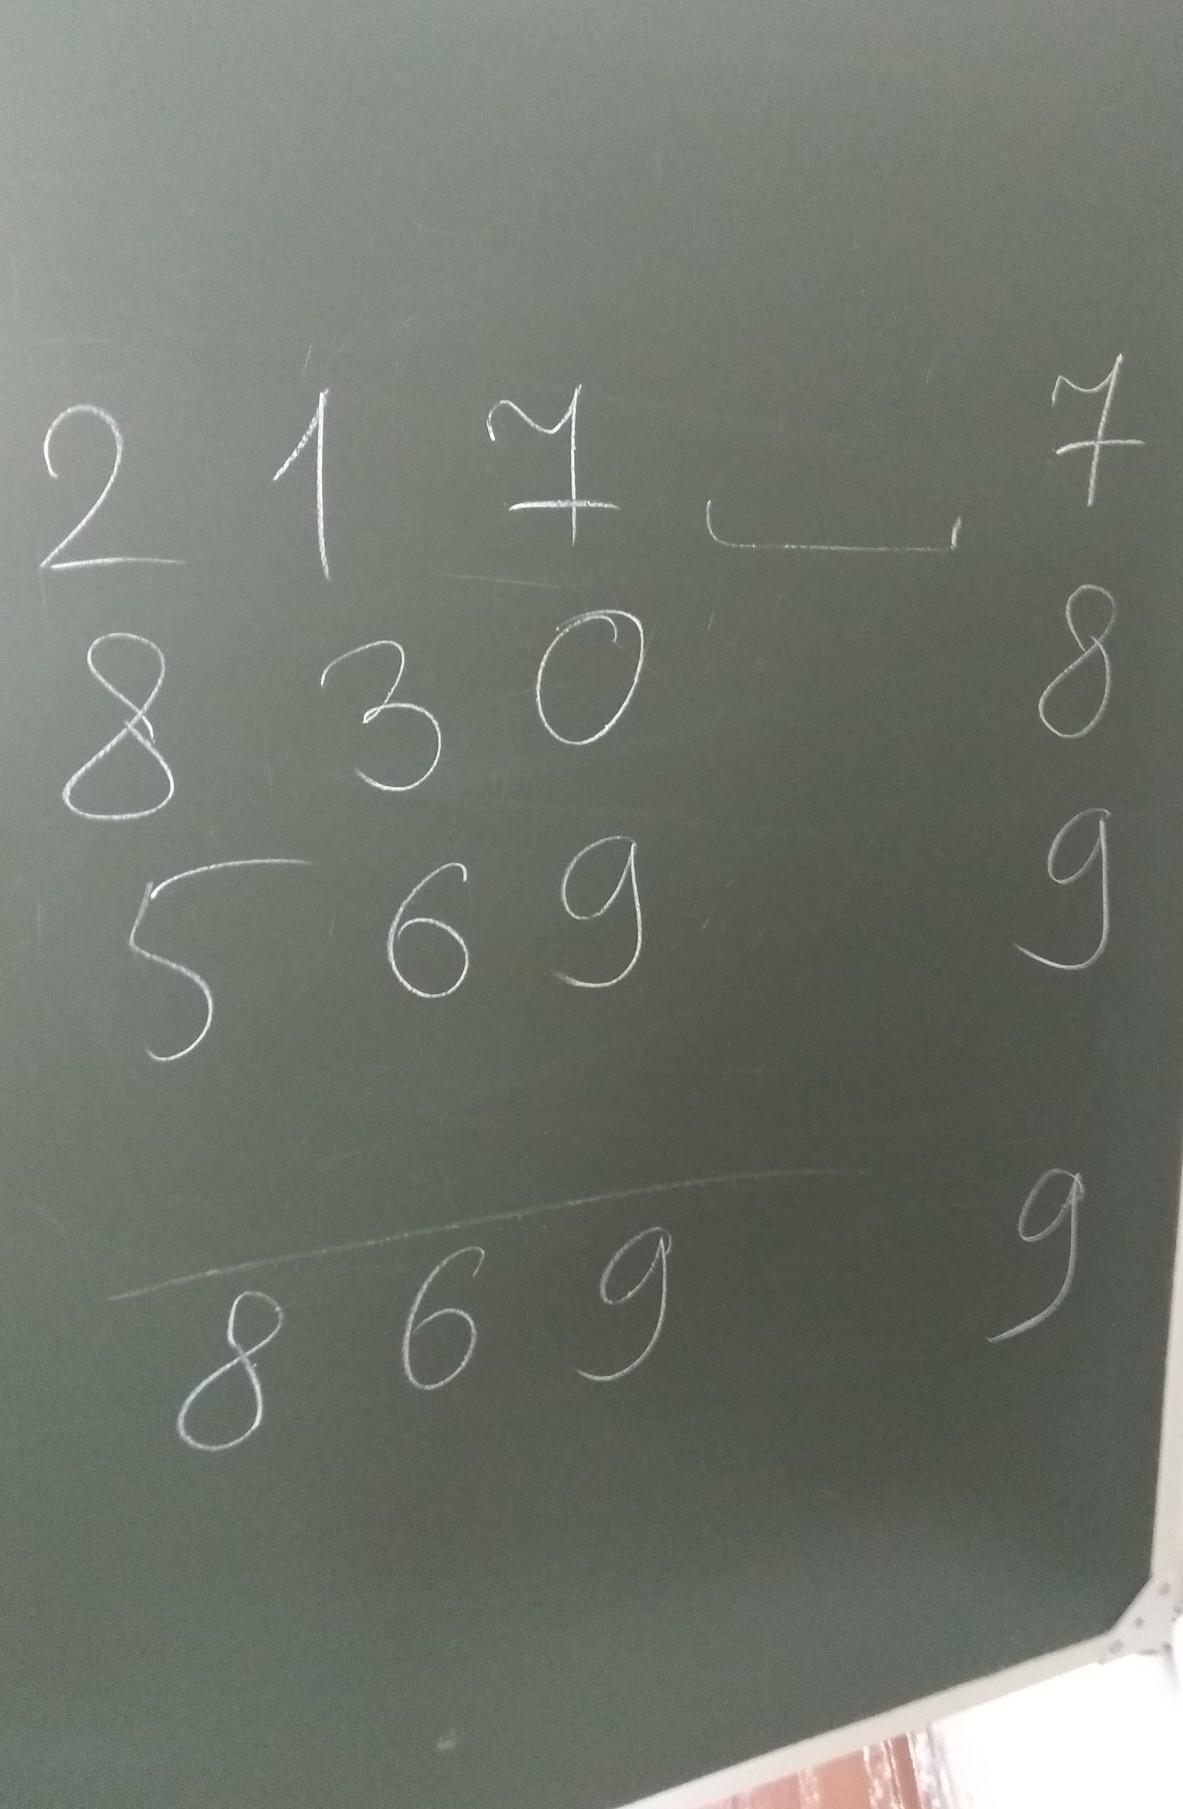 2 1 7 7
8 3 0 8
5 6 9 9
8 6 9 9